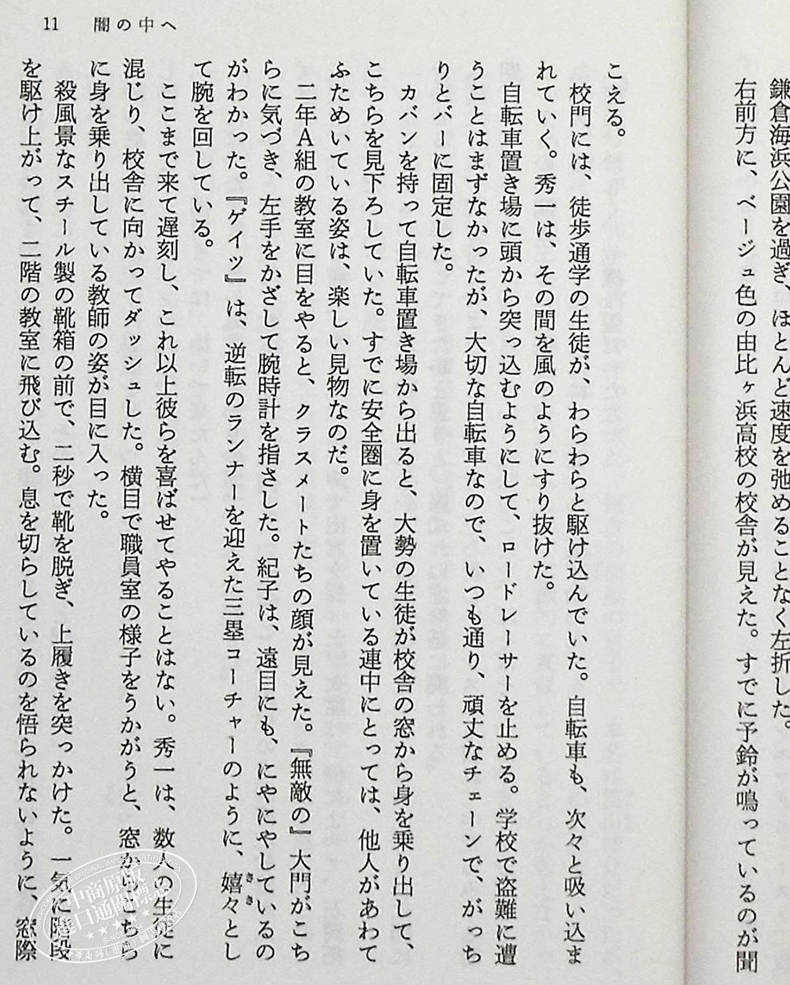 鎌倉海浜公園を過ぎ、ほとんど速度を弛めることなく左折した。
右前方に、ベージュ色の由比ヶ浜高校の校舎が見えた。すでに予鈴が鳴っているのが聞
11 闇の中へ
こえる。
校門には、徒歩通学の生徒が、わらわらと駆け込んでいた。自転車も、次々と吸い込ま
れていく。秀一は、その間を風のようにすり抜けた。
自転車置き場に頭から突っ込むようにして、ロードレーサーを止める。学校で盗難に遭
うことはまずなかったが、大切な自転車なので、いつも通り、頑丈なチェーンで、がっち
りとバーに固定した。
カバンを持って自転車置き場から出ると、大勢の生徒が校舎の窓から身を乗り出して、
こちらを見下ろしていた。すでに安全圏に身を置いている連中にとっては、他人があわて
ふためいている姿は、楽しい見物なのだ。
二年A組の教室に目をやると、クラスメートたちの顔が見えた。『無敵の』大門がこち
らに気づき、左手をかざして腕時計を指さした。紀子は、遠目にも、にやにやしているの
がわかった。『ゲイツ』は、逆転のランナーを迎えた三塁コーチャーのように、嬉々とし
きき
て腕を回している。
ここまで来て遅刻し、これ以上彼らを喜ばせてやることはない。秀一は、数人の生徒に
混じり、校舎に向かってダッシュした。横目で職員室の様子をうかがうと、窓からこちら
に身を乗り出している教師の姿が目に入った。
殺風景なスチール製の靴箱の前で、二秒で靴を脱ぎ、上履きを突っかけた。一気に階段
を駆け上がって、二階の教室に飛び込む。息を切らしているのを悟られないように、窓際
中商原版
進口通關標志